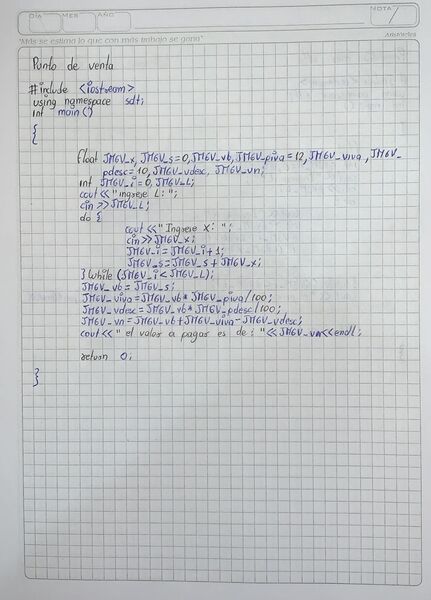 DÍA MES AÑO NOTA
"Más se estima lo que con más trabajo se gana" Aristóteles
Punto de venta
#include <iostream>
using namespace sdt;
int main()
{
float JMGV_x, JMGV_s=0, JMGV_vb, JMGV_piva=12, JMGV_viva, JMGV_
pdesc=10, JMGV_vdesc, JMGV_vn;
int JMGV_i=0, JMGV_L;
cout<<"ingrese L: ";
cin>>JMGV_L;
do {
cout<<"Ingrese X: ";
cin>>JMGV_x;
JMGV_i=JMGV_i+1;
JMGV_s=JMGV_s + JMGV_x;
}while (JMGV_i<JMGV_L);
JMGV_vb=JMGV_s;
JMGV_viva=JMGV_vb*JMGV_piva/100;
JMGV_vdesc=JMGV_vb*JMGV_pdesc/100;
JMGV_vn=JMGV_vb+JMGV_viva-JMGV_vdesc;
cout<<" el valor a pagar es de: "<<JMGV_vn<<endl;
return 0;
}